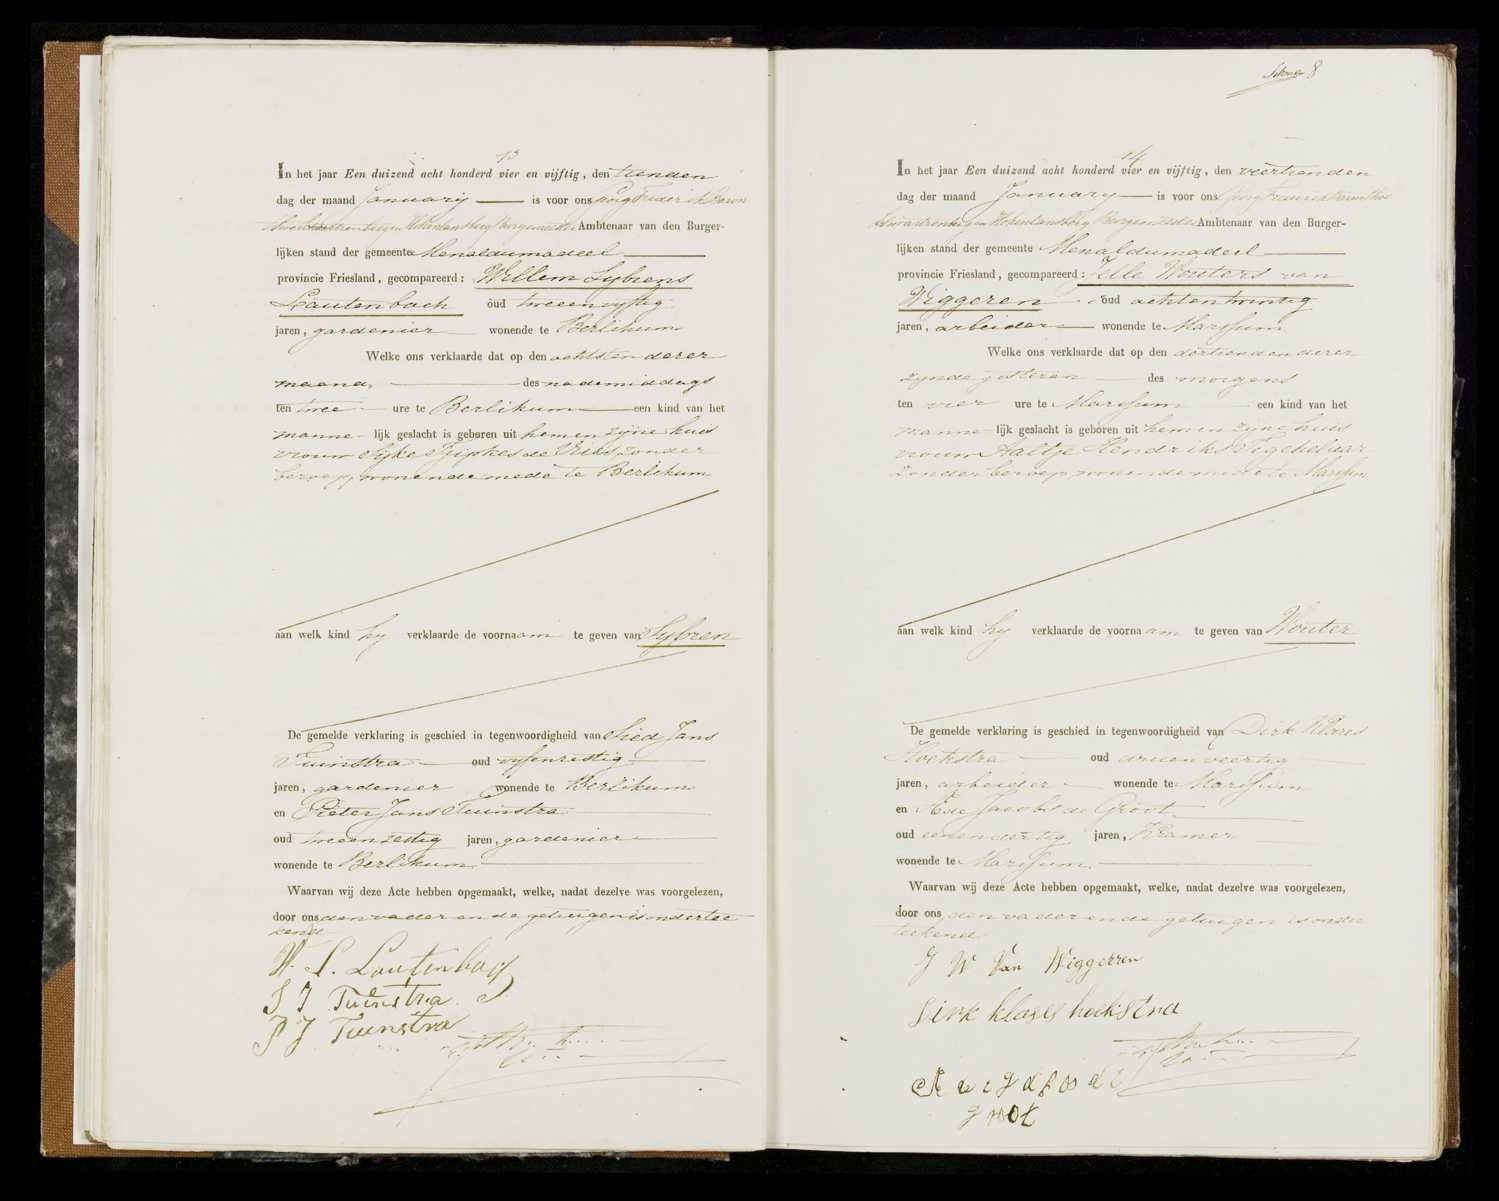 13
In het jaar Een duizend acht honderd vier en vijftig, den tienden
dag der maand January is voor ons Georg Frederik Baron
thoe Schwartzenberg en Hohenlansberg Burgemeester Ambtenaar van den Burger-
lijken stand der gemeente Menaldumadeel
provincie Friesland, gecompareerd: Willem Sybrens
Lautenbach oud tweeenvyftig
jaren, gardenier wonende te Berlikum
Welke ons verklaarde dat op den achtsten dezer
maand, des nademiddags
ten twee ure te Berlikum een kind van het
manne- lijk geslacht is geboren uit hem en zijne huis
vrouw Sijke Tjipkes de Vries zonder
beroep, wonende mede te Berlikum
aan welk kind hy verklaarde de voornaam te geven van Sybren
De gemelde verklaring is geschied in tegenwoordigheid van Sied Jans
Tuinstra oud vyfenzestig
jaren, gardenier wonende te Berlikum
en Pieter Jans Tuinstra
oud tweenzestig jaren, gardenier
wonende te Berlikum
Waarvan wij deze Acte hebben opgemaakt, welke, nadat dezelve was voorgelezen,
door ons den vader en de getuigen is ondertee
kend
W. S. Lautenbag
S J Tuinstra
P J Tuinstra
8
14
In het jaar Een duizend acht honderd vier en vijftig, den veertienden
dag der maand January is voor ons Georg Frederik Baron thoe
Schwartzenberg en Hohenlansberg Burgemeester Ambtenaar van den Burger-
lijken stand der gemeente Menaldumadeel
provincie Friesland, gecompareerd: Jelle Wouters van
Wiggeren oud achtentwintig
jaren, arbeider wonende te Marssum
Welke ons verklaarde dat op den dertienden dezer
zynde gisteren des morgens
ten vier ure te Marssum een kind van het
manne- lijk geslacht is geboren uit hem en zyne huis
vrouw Aaltje Hendriks Tigchelaar
zonder beroep, wonende mede te Marssum
aan welk kind hy verklaarde de voornaam te geven van Wouter
De gemelde verklaring is geschied in tegenwoordigheid van Dirk Klases
Hoekstra oud drieenveertig
jaren, arbeider wonende te Marssum
en Jacobs de Groot
oud eenendertig jaren, Kramer
wonende te Marssum
Waarvan wij deze Acte hebben opgemaakt, welke, nadat dezelve was voorgelezen,
door ons den vader en de getuigen is onder
teekend
J W Van Wiggerren
Dirk klases hoekstra
de
groot